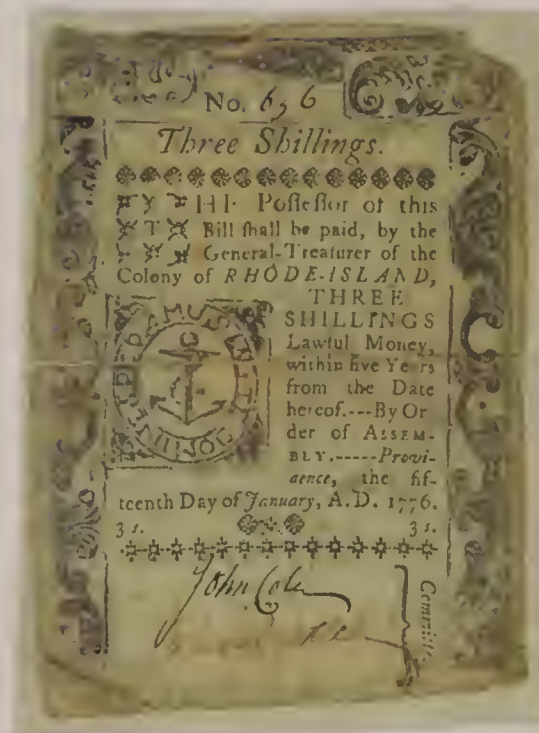 No. 656
Three Shillings.
THE Possessor of this
Bill shall be paid, by the
General-Treasurer of the
Colony of RHODE-ISLAND,
THREE
SHILLINGS
Lawful Money,
within five Years
from the Date
hereof.---By Or
der of ASSEM-
BLY.-----Provi-
dence, the fif-
teenth Day of January, A.D. 1776.
3 s. 3 s.
John Cole
Committee.